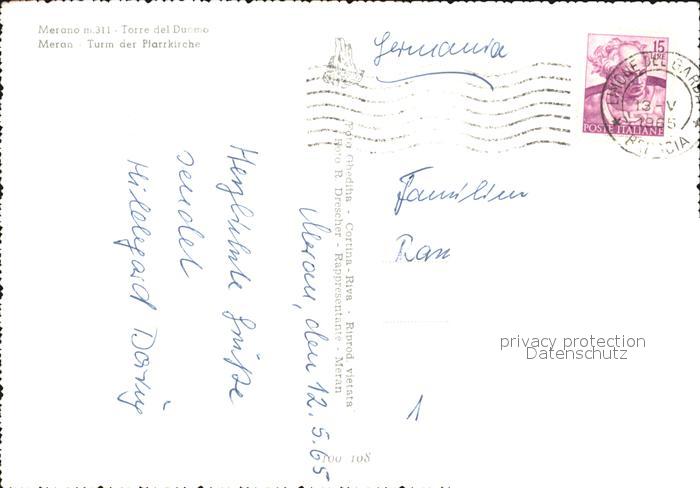 Merano m.311 - Torre del Duomo
Meran - Turm der Pfarrkirche
Germania
15
LIRE
POSTE ITALIANE
LIMONE DEL GARDA
13-V
1965
BRESCIA
Foto Ghedina - Cortina - Riva - Riprod. vietata
Foto R. Drescher - Rappresentante - Meran
Meran, den 12.5.65
Herzlichste Grüße
sendet
Hildegard
Familien
Rau
1
100 108
privacy protection
Datenschutz